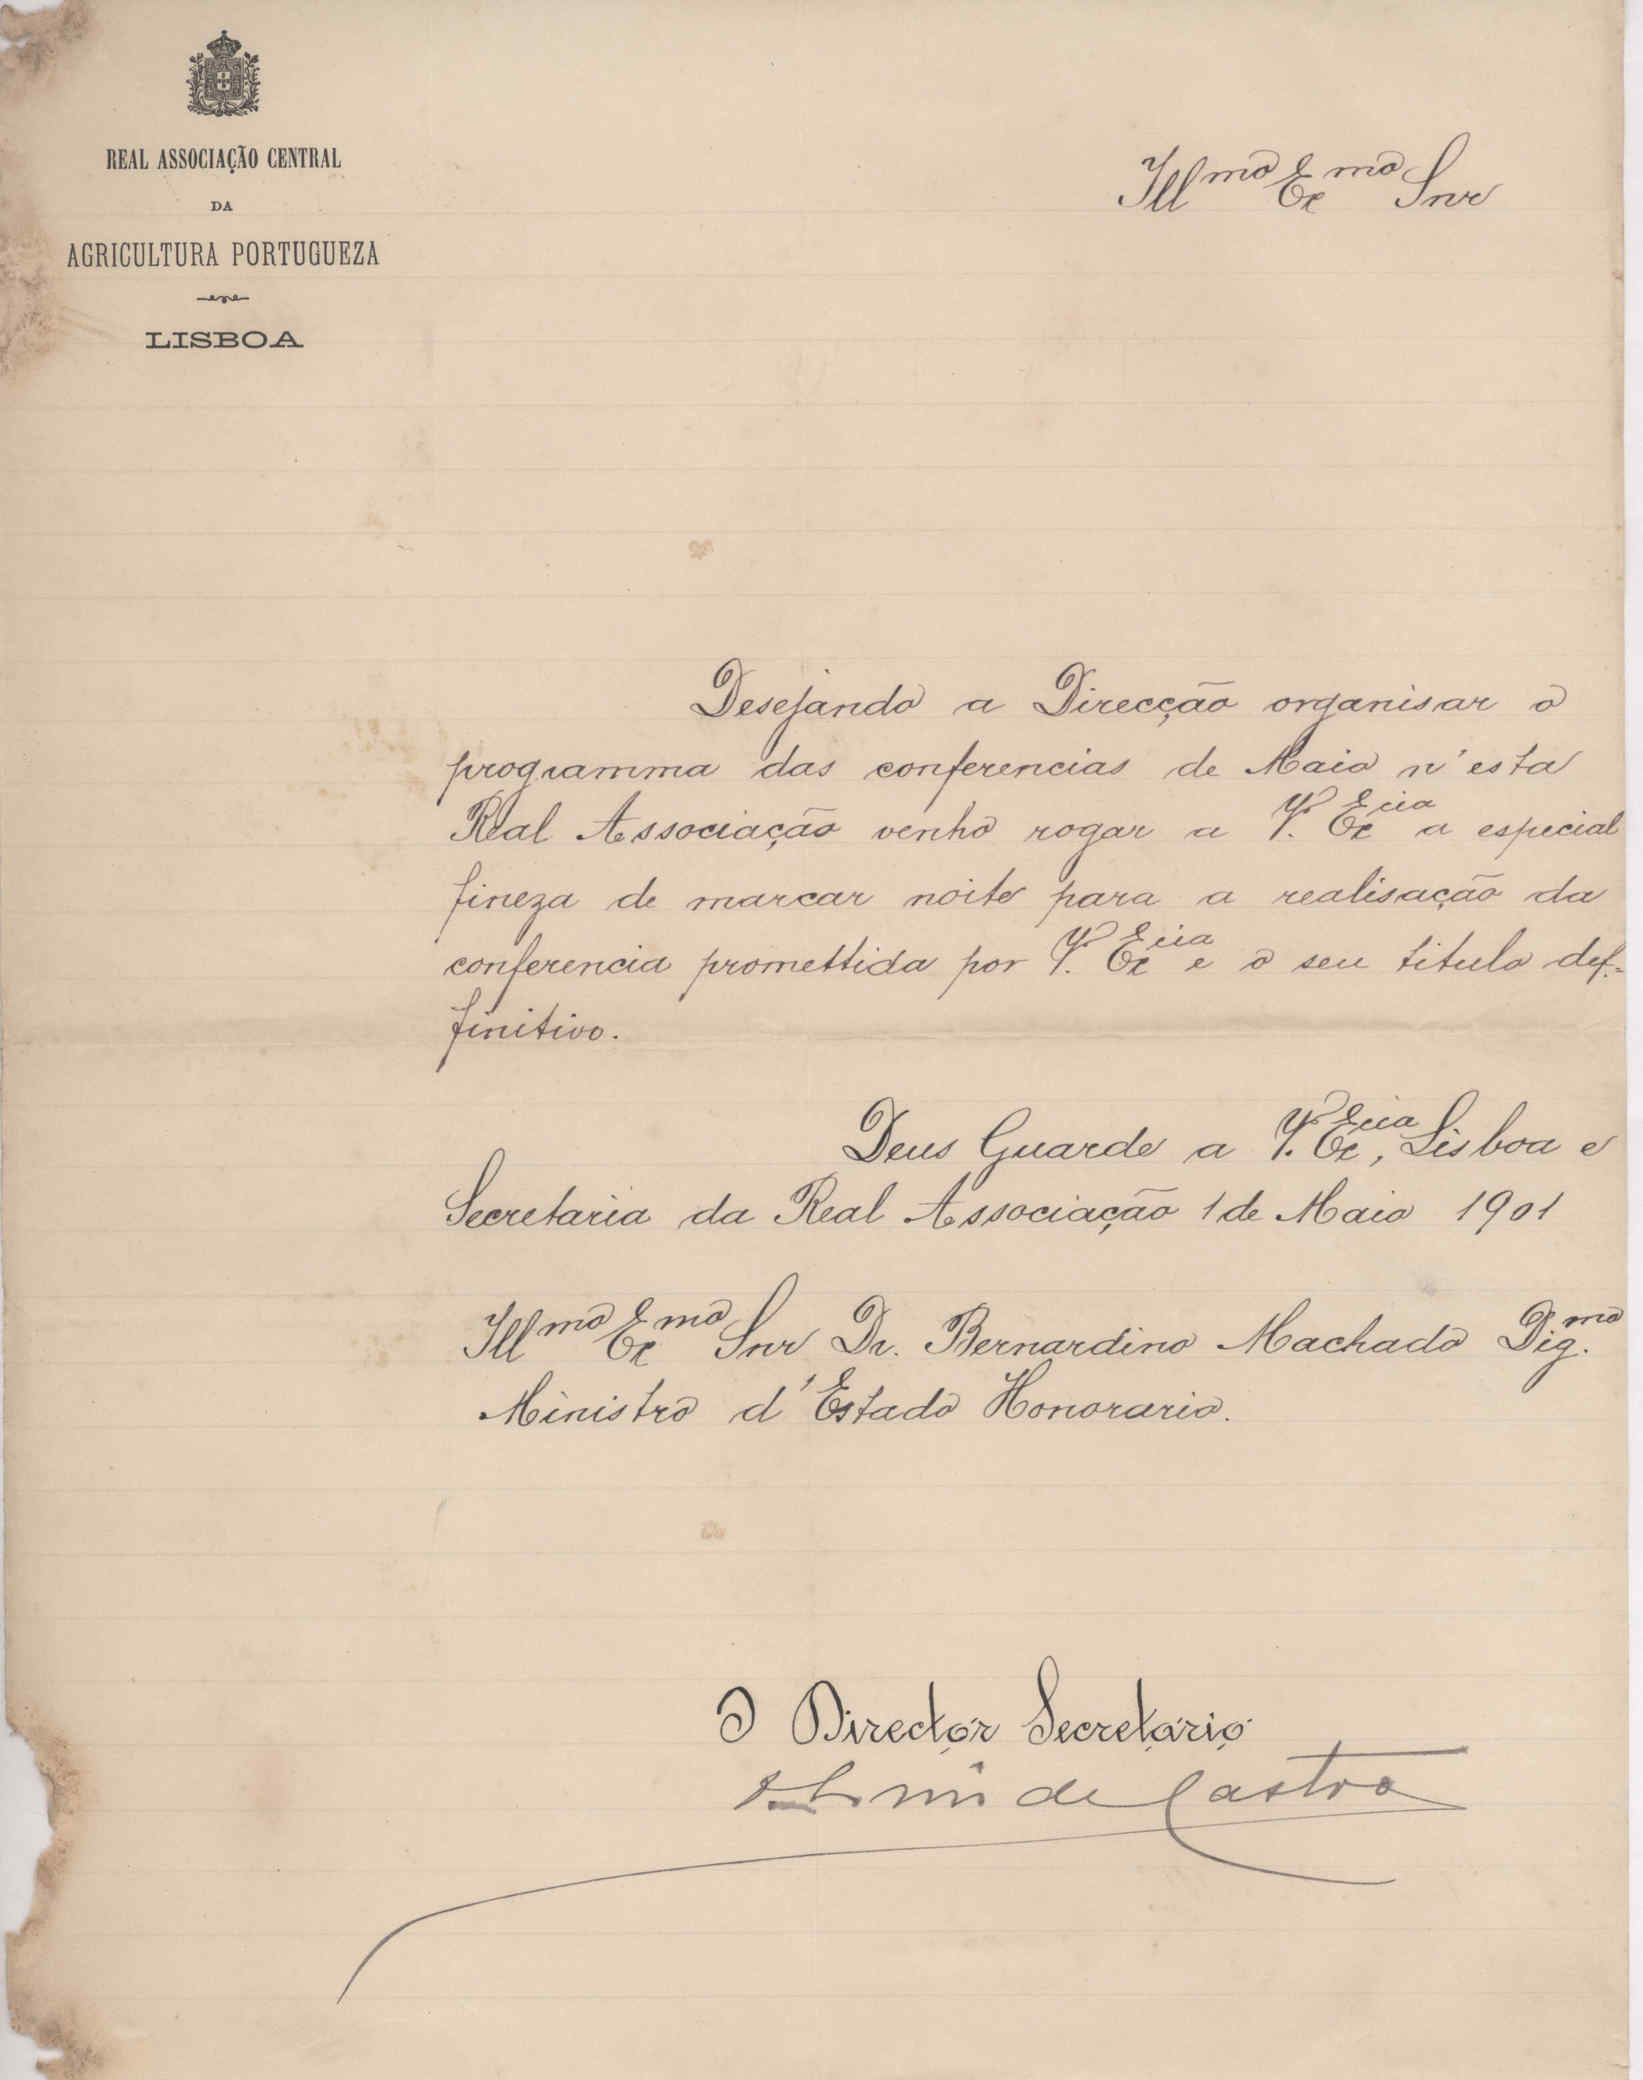 REAL ASSOCIAÇÃO CENTRAL
DA
AGRICULTURA PORTUGUEZA
LISBOA
Illmo Exmo Snr
Desejando a Direcção organisar o
programma das conferencias de Maio n'esta
Real Associação venho rogar a V. Excia a especial
fineza de marcar noite para a realisação da
conferencia promettida por V. Excia e o seu titulo def-
finitivo.
Deus Guarde a V. Excia, Lisboa e
Secretaria da Real Associação 1 de Maio 1901
Illmo Exmo Snr Dr. Bernardino Machado Dig.mo
Ministro d'Estado Honorario.
O Director Secretario
de Castro